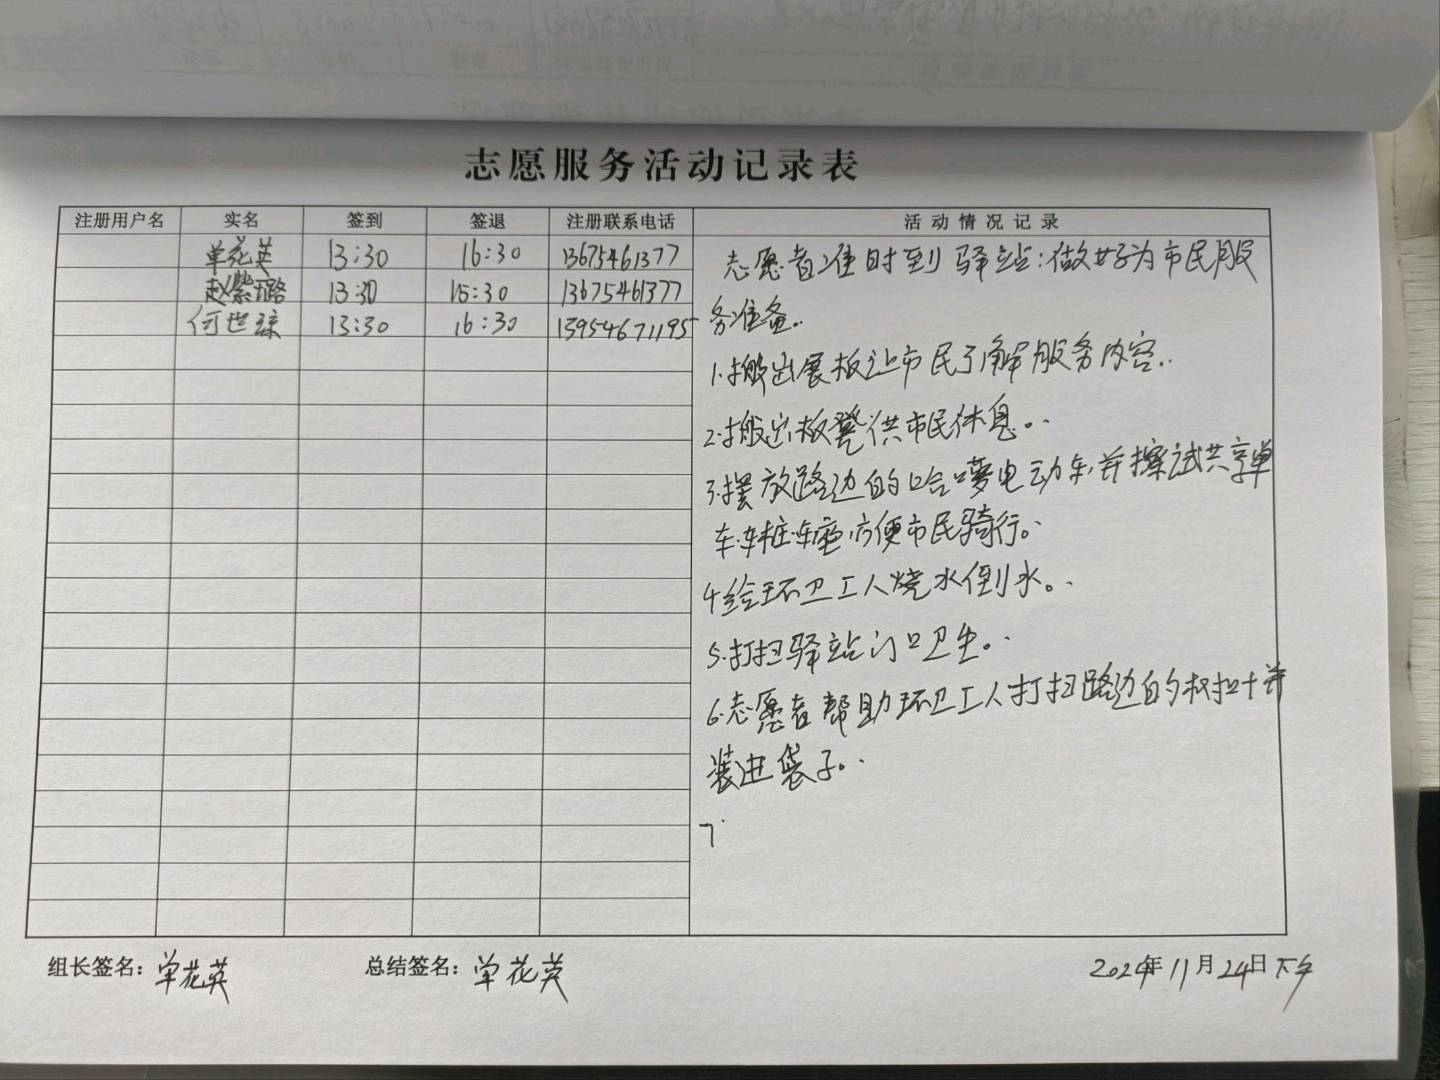 志愿服务活动记录表
注册用户名 实名 签到 签退 注册联系电话 活动情况记录
单花英 13:30 16:30 13675461377
赵紫璐 13:30 15:30 13675461377
何世琼 13:30 16:30 13954671195
志愿者准时到驿站:做好为市民服
务准备..
1.搬出展板让市民了解服务内容..
2.搬出板凳供市民休息。.
3.摆放路边的哈啰电动车,并擦试共享单
车.车桩.车座,方便市民骑行。.
4.给环卫工人烧水倒水。.
5.打扫驿站门口卫生。.
6.志愿者帮助环卫工人打扫路边的树叶并
装进袋子。.
7.
组长签名:单花英 总结签名:单花英 2024年11月24日下午